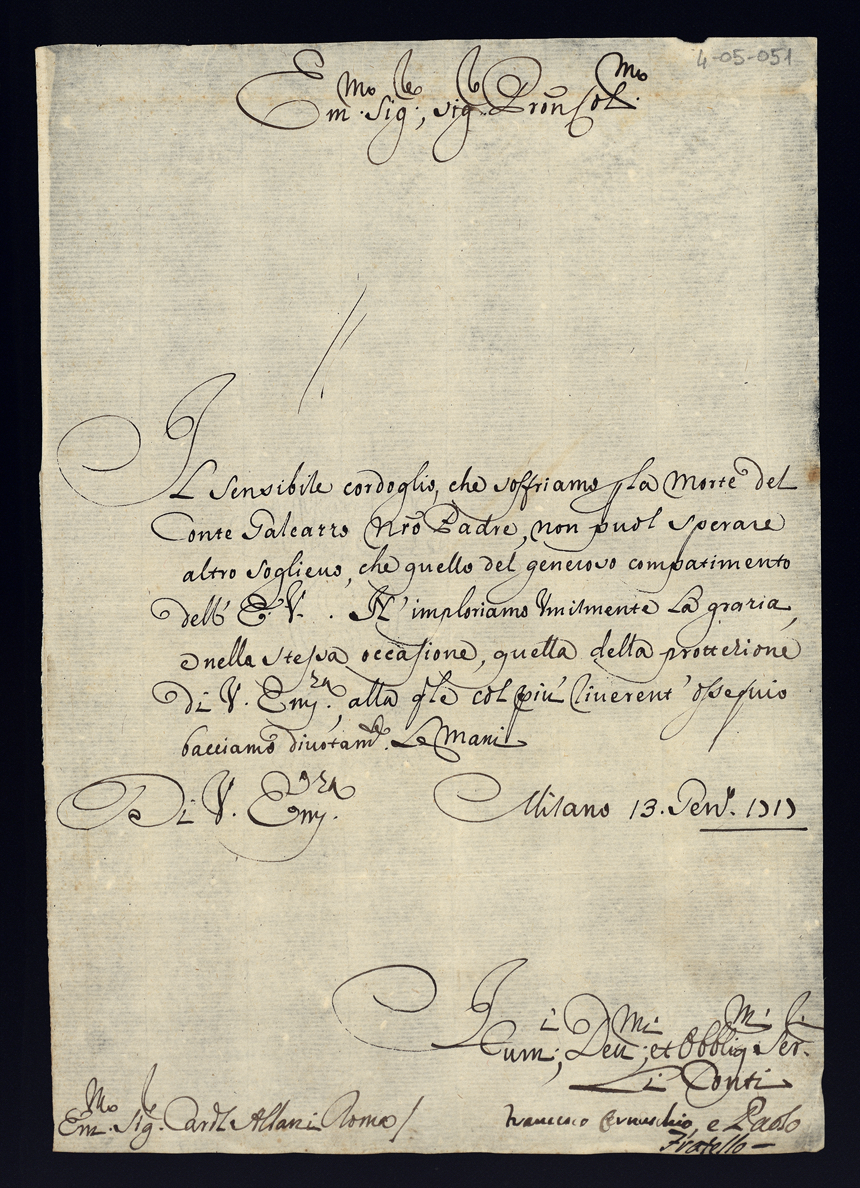 4-05-051
Em.mo Sig.re, sig.re Pron Col.mo
Il sensibile cordoglio, che soffriamo p la Morte del
Conte Galeazzo Nro Padre, non puol sperare
altro soglievo, che quello del generoso compatimento
dell' E. V. . N' imploriamo Umilmente La grazia,
e nella stessa occasione, quella della prottezione
Di V. Em.za, alla qle col più riverent' ossequio
bacciamo divotam.te Le Mani
Di V. Em.za Milano 13. Gen.ro 1717
Um.i, Deu.mi, et Obblig.mi Ser.i
Li Conti
Francesco , e Paolo
Fratello
Em.mo Sig.re Card.l Albani Roma /